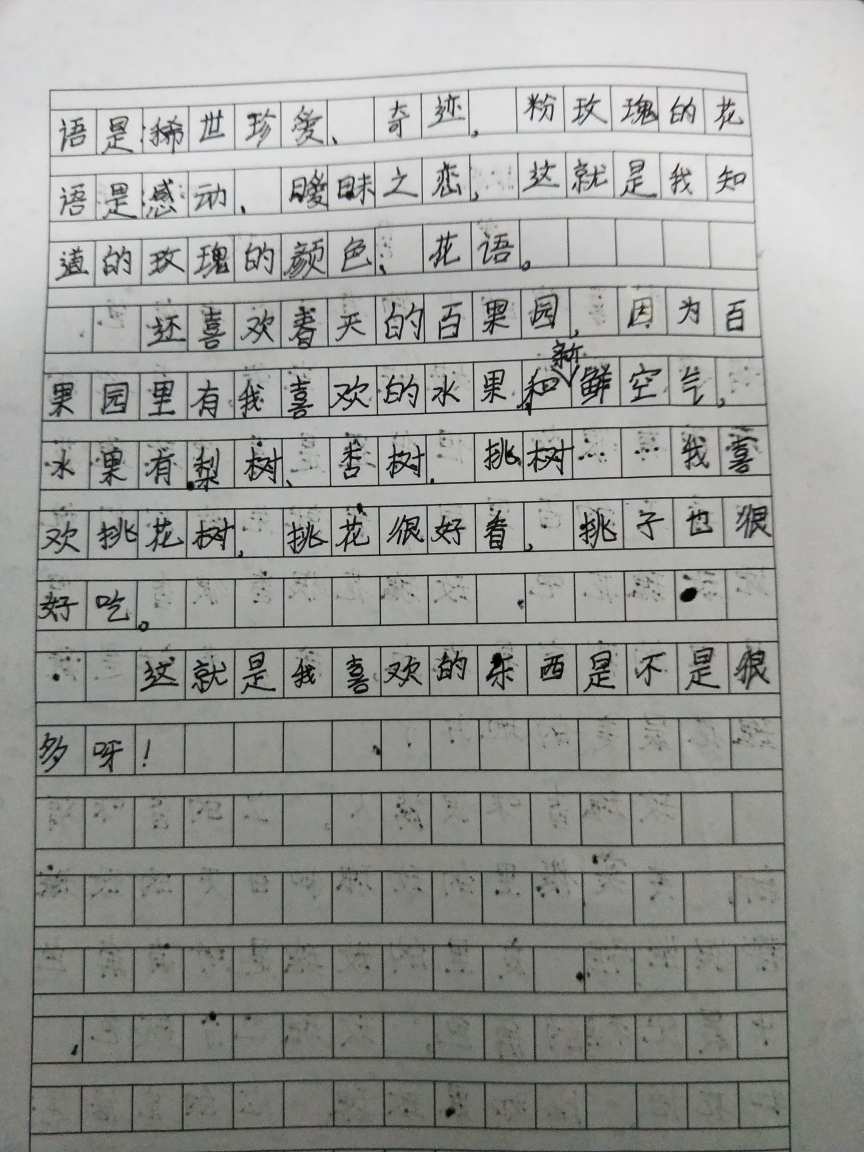 语是稀世珍爱、奇迹,粉玫瑰的花
语是感动、暧昧之恋,这就是我知
道的玫瑰的颜色、花语。
还喜欢春天的百果园,因为百
果园里有我喜欢的水果,和新鲜空气,
水果有梨树、杏树、挑树……我喜
欢挑花树,挑花很好看,挑子也很
好吃。
这就是我喜欢的东西是不是很
多呀!